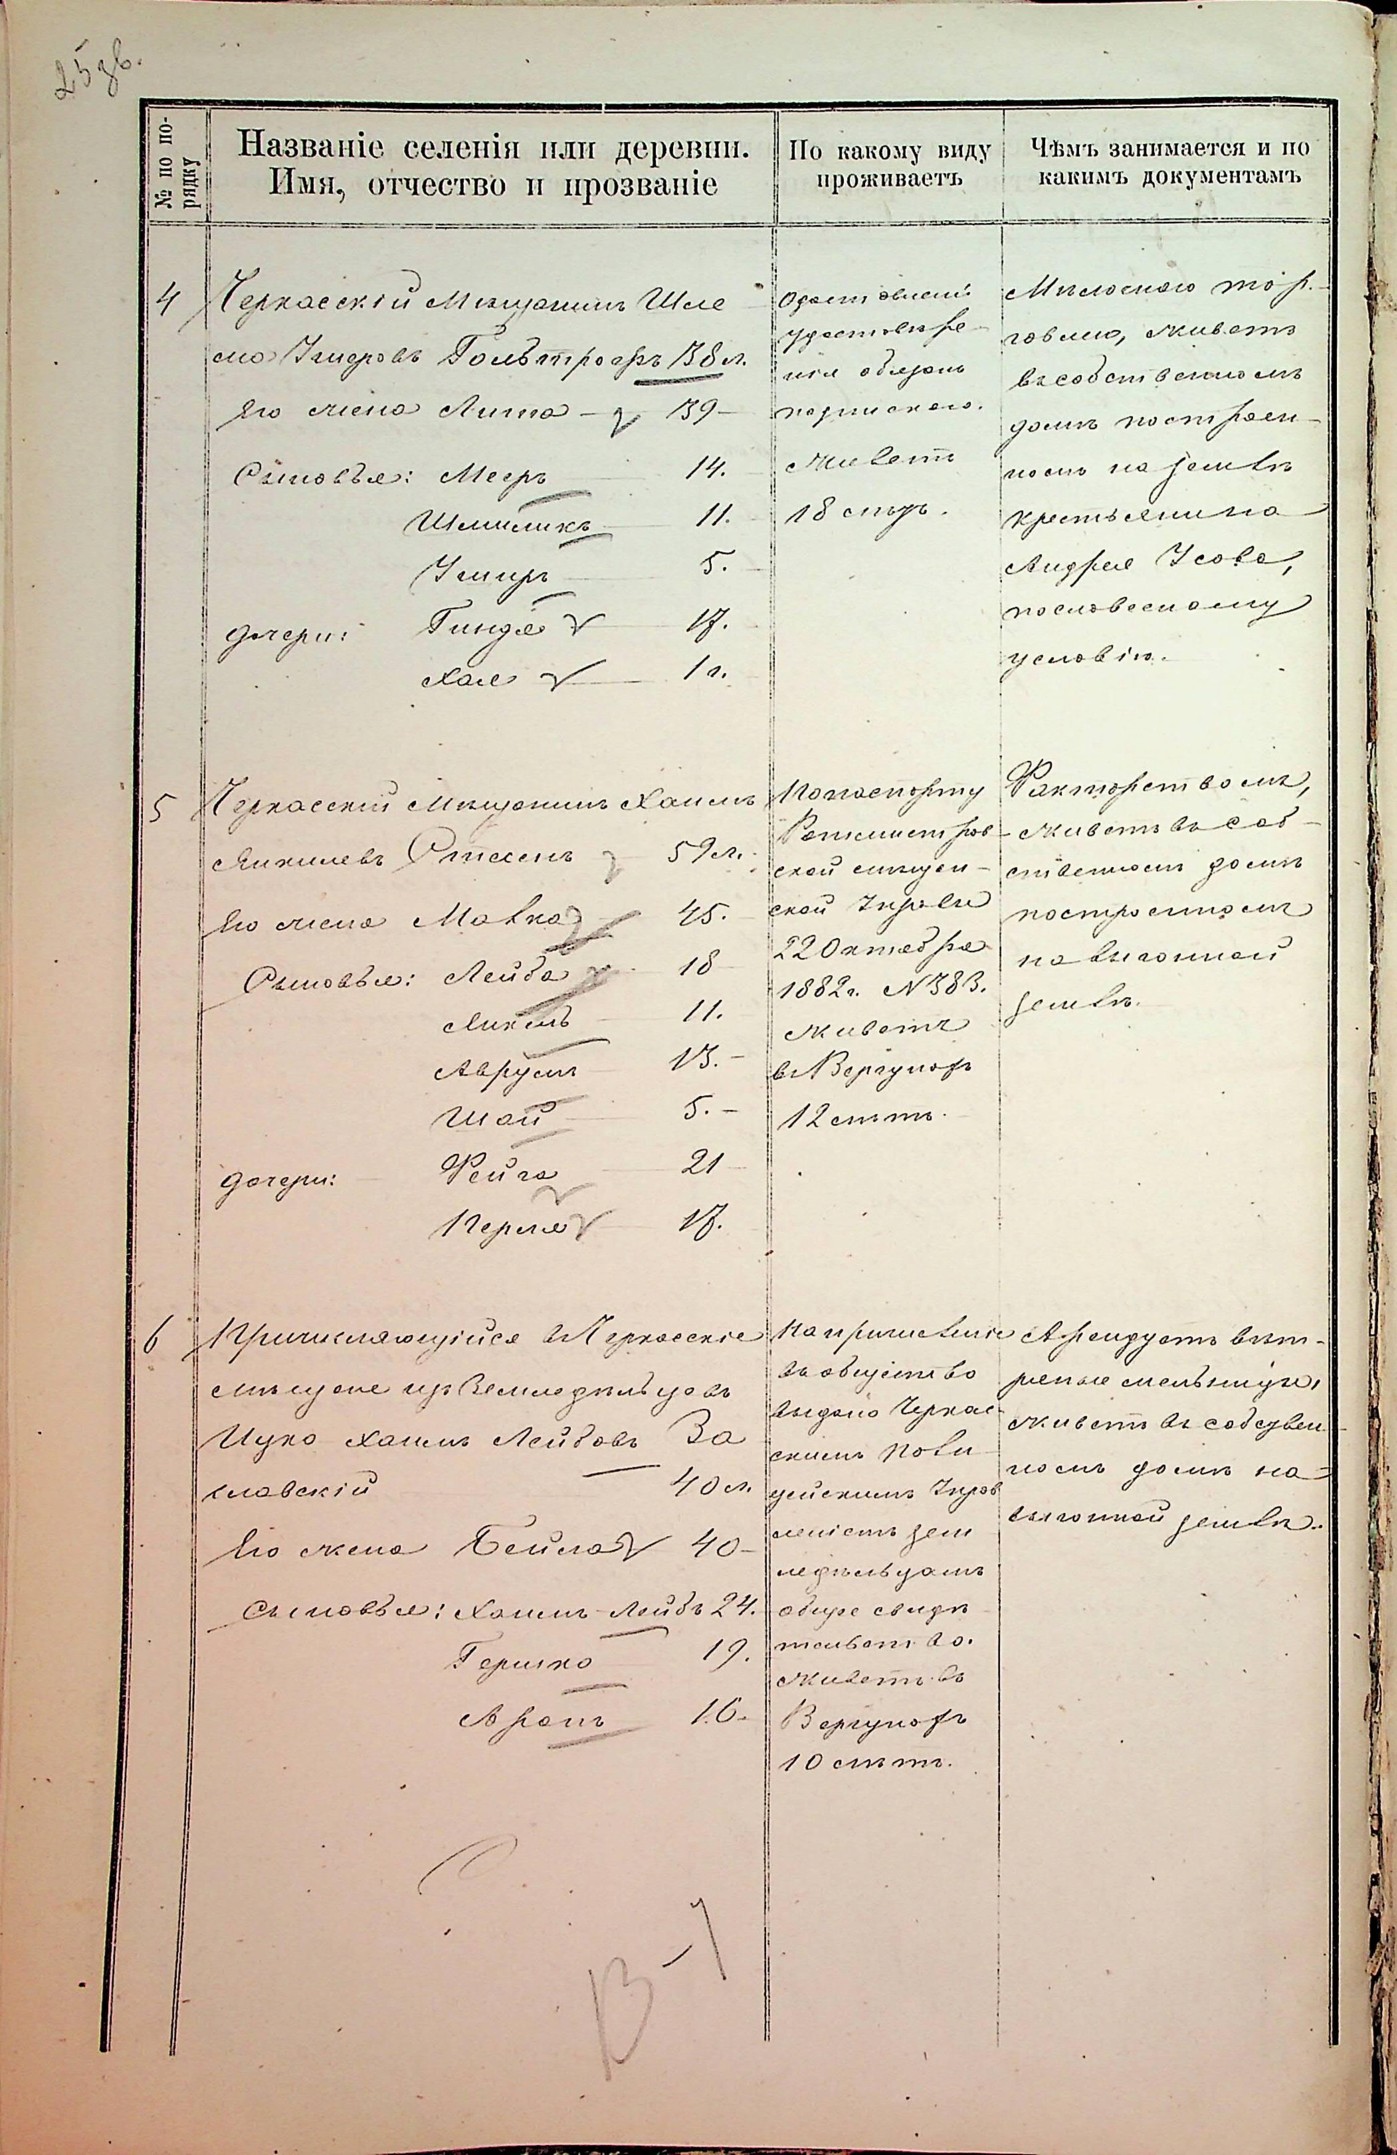 25 зв.
№ по по-
рядку
Названіе селенія или деревни.
Имя, отчество и прозваніе
По какому виду
проживаетъ
Чѣмъ занимается и по
какимъ документамъ
4
Черкасскій мѣщанинъ Шле
ма Умеровъ 38 л.
Его жена Лиша 39
Сыновья: Мееръ 14.
Шмиликъ 11.
Умиръ 5.
дочери: Гиндя 17.
Хая 1 г.
живетъ
18 лѣтъ.
Мелочною тор-
говлею, живетъ
въ собственномъ
домѣ построен-
номъ на землѣ
крестьянина
Андрея Усова,
по словесному
условію.
5
Черкасскій мѣщанинъ Хаимъ
Янкилевъ 59 л.
Его жена Мавка 45.
Сыновья: Лейба 18
Янкель 11.
Аврумъ 13.
Шай 5.
дочери: Фейга 21
Перля 17.
По паспорту
Ратмистров-
ской мѣщан-
ской Управы
22 Октября
1882 г. № 383.
живетъ
въ Вергунахъ
12 лѣтъ.
Факторствомъ,
живетъ въ соб-
ственномъ домѣ
построенномъ
на выгонной
землѣ.
6
Причисляющійся въ Черкасскіе
мѣщане изъ земледѣльцовъ
Ицко Хаимъ Лейбовъ За
славскій 40 л.
Его жена Бейла 40
Сыновья: Хаимъ-Лейбъ 24.
Гершко 19.
Аронъ 16.
На причисленіе
въ общество
выдано Черкас-
скимъ Поли
цейскимъ Управ
леніемъ зем
ледѣльцамъ
общее свидѣ
тельство.
Живетъ въ
Вергунахъ
10 лѣтъ.
Арендуетъ вѣт-
реные мельницы,
живетъ въ собствен
номъ домѣ на
выгонной землѣ.